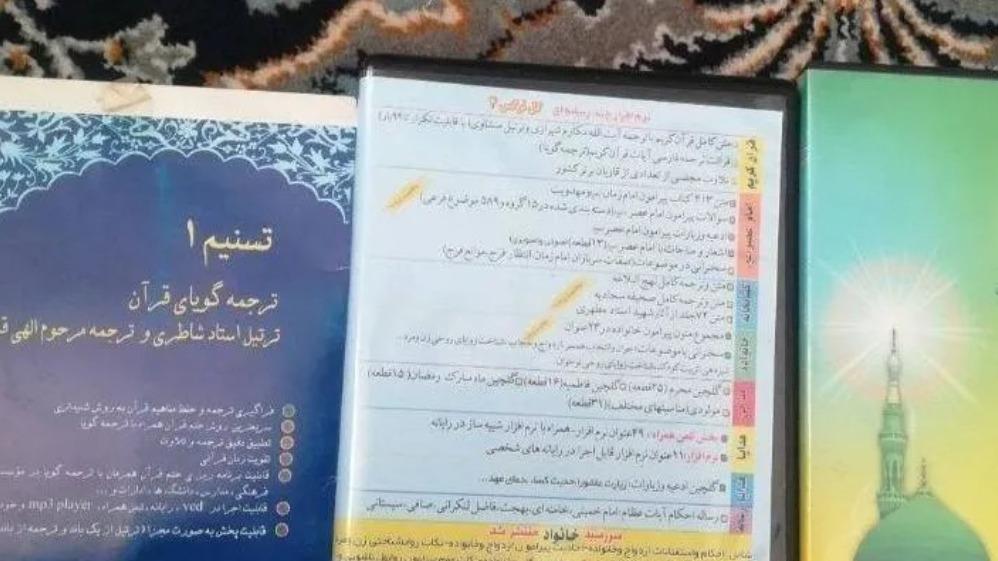 تسنیم ۱
ترجمه گویای قرآن
ترتیل استاد شاطری و ترجمه مرحوم الهی
فراگیری ترجمه و حفظ مفاهیم قرآن به روش شنیداری
سریعترین روش ختم قرآن همراه با ترجمه گویا
تطبیق دقیق ترجمه و تلاوت
تقویت زبان قرآنی
قابلیت برنامه ریزی ختم قرآن همزمان با ترجمه گویا در
فرهنگی، مدارس، دانشگاه ها، ادارات و...
قابلیت اجرا در vcd ، رایانه، تلفن همراه، mp3 player و
قابلیت پخش به صورت مجزا (ترتیل از یک باند و ترجمه از باند
نرم افزار چند رسانه‌ای گل نرگس ۲
قرآن کریم
متن کامل قرآن کریم با ترجمه آیت الله مکارم شیرازی و ترتیل منشاوی( با قابلیت تکرار تا ۹۹بار)
قرائت ترجمه فارسی آیات قرآن کریم(ترجمه گویا)
تلاوت مجلسی از تعدادی از قاریان برتر کشور
متن ۴۱۳ کتاب پیرامون امام زمان و مهدویت
سوالات پیرامون امام عصر (دسته بندی شده در ۱۵گروه و ۵۸۹ موضوع فرعی)
ادعیه و زیارات پیرامون امام عصر
اشعار و مناجات با امام عصر (۱۲قطعه)صوتی و تصویری
سخنرانی در موضوعات(صفات سربازان امام زمان، انتظار فرج، موانع فرج)
کتابخانه
متن و ترجمه کامل نهج البلاغه
متن و ترجمه کامل صحیفه سجادیه
متن ۷۲جلد از آثار شهید استاد مطهری
خانواده
مجموع متون پیرامون خانواده در ۲۳عنوان
سخنرانی با موضوعات
گلچین محرم (۲۵قطعه) گلچین فاطمیه(۱۶قطعه) گلچین ماه مبارک رمضان(۱۵قطعه)
مولودی(مناسبتهای مختلف)(۳۱قطعه)
هدایا
بخش تلفن همراه: ۴۹عنوان نرم افزار-همراه با نرم افزار شبیه ساز در رایانه
نرم افزار:۱۱عنوان نرم افزار قابل اجرا در رایانه های شخصی
گلچین ادعیه و زیارات: زیارت عاشورا، حدیث کساء، دعای عهد...
رساله احکام آیات عظام: امام خمینی،خامنه ای،بهجت،فاضل لنکرانی،صافی،سیستانی
سررسید خانواده منتشر شد